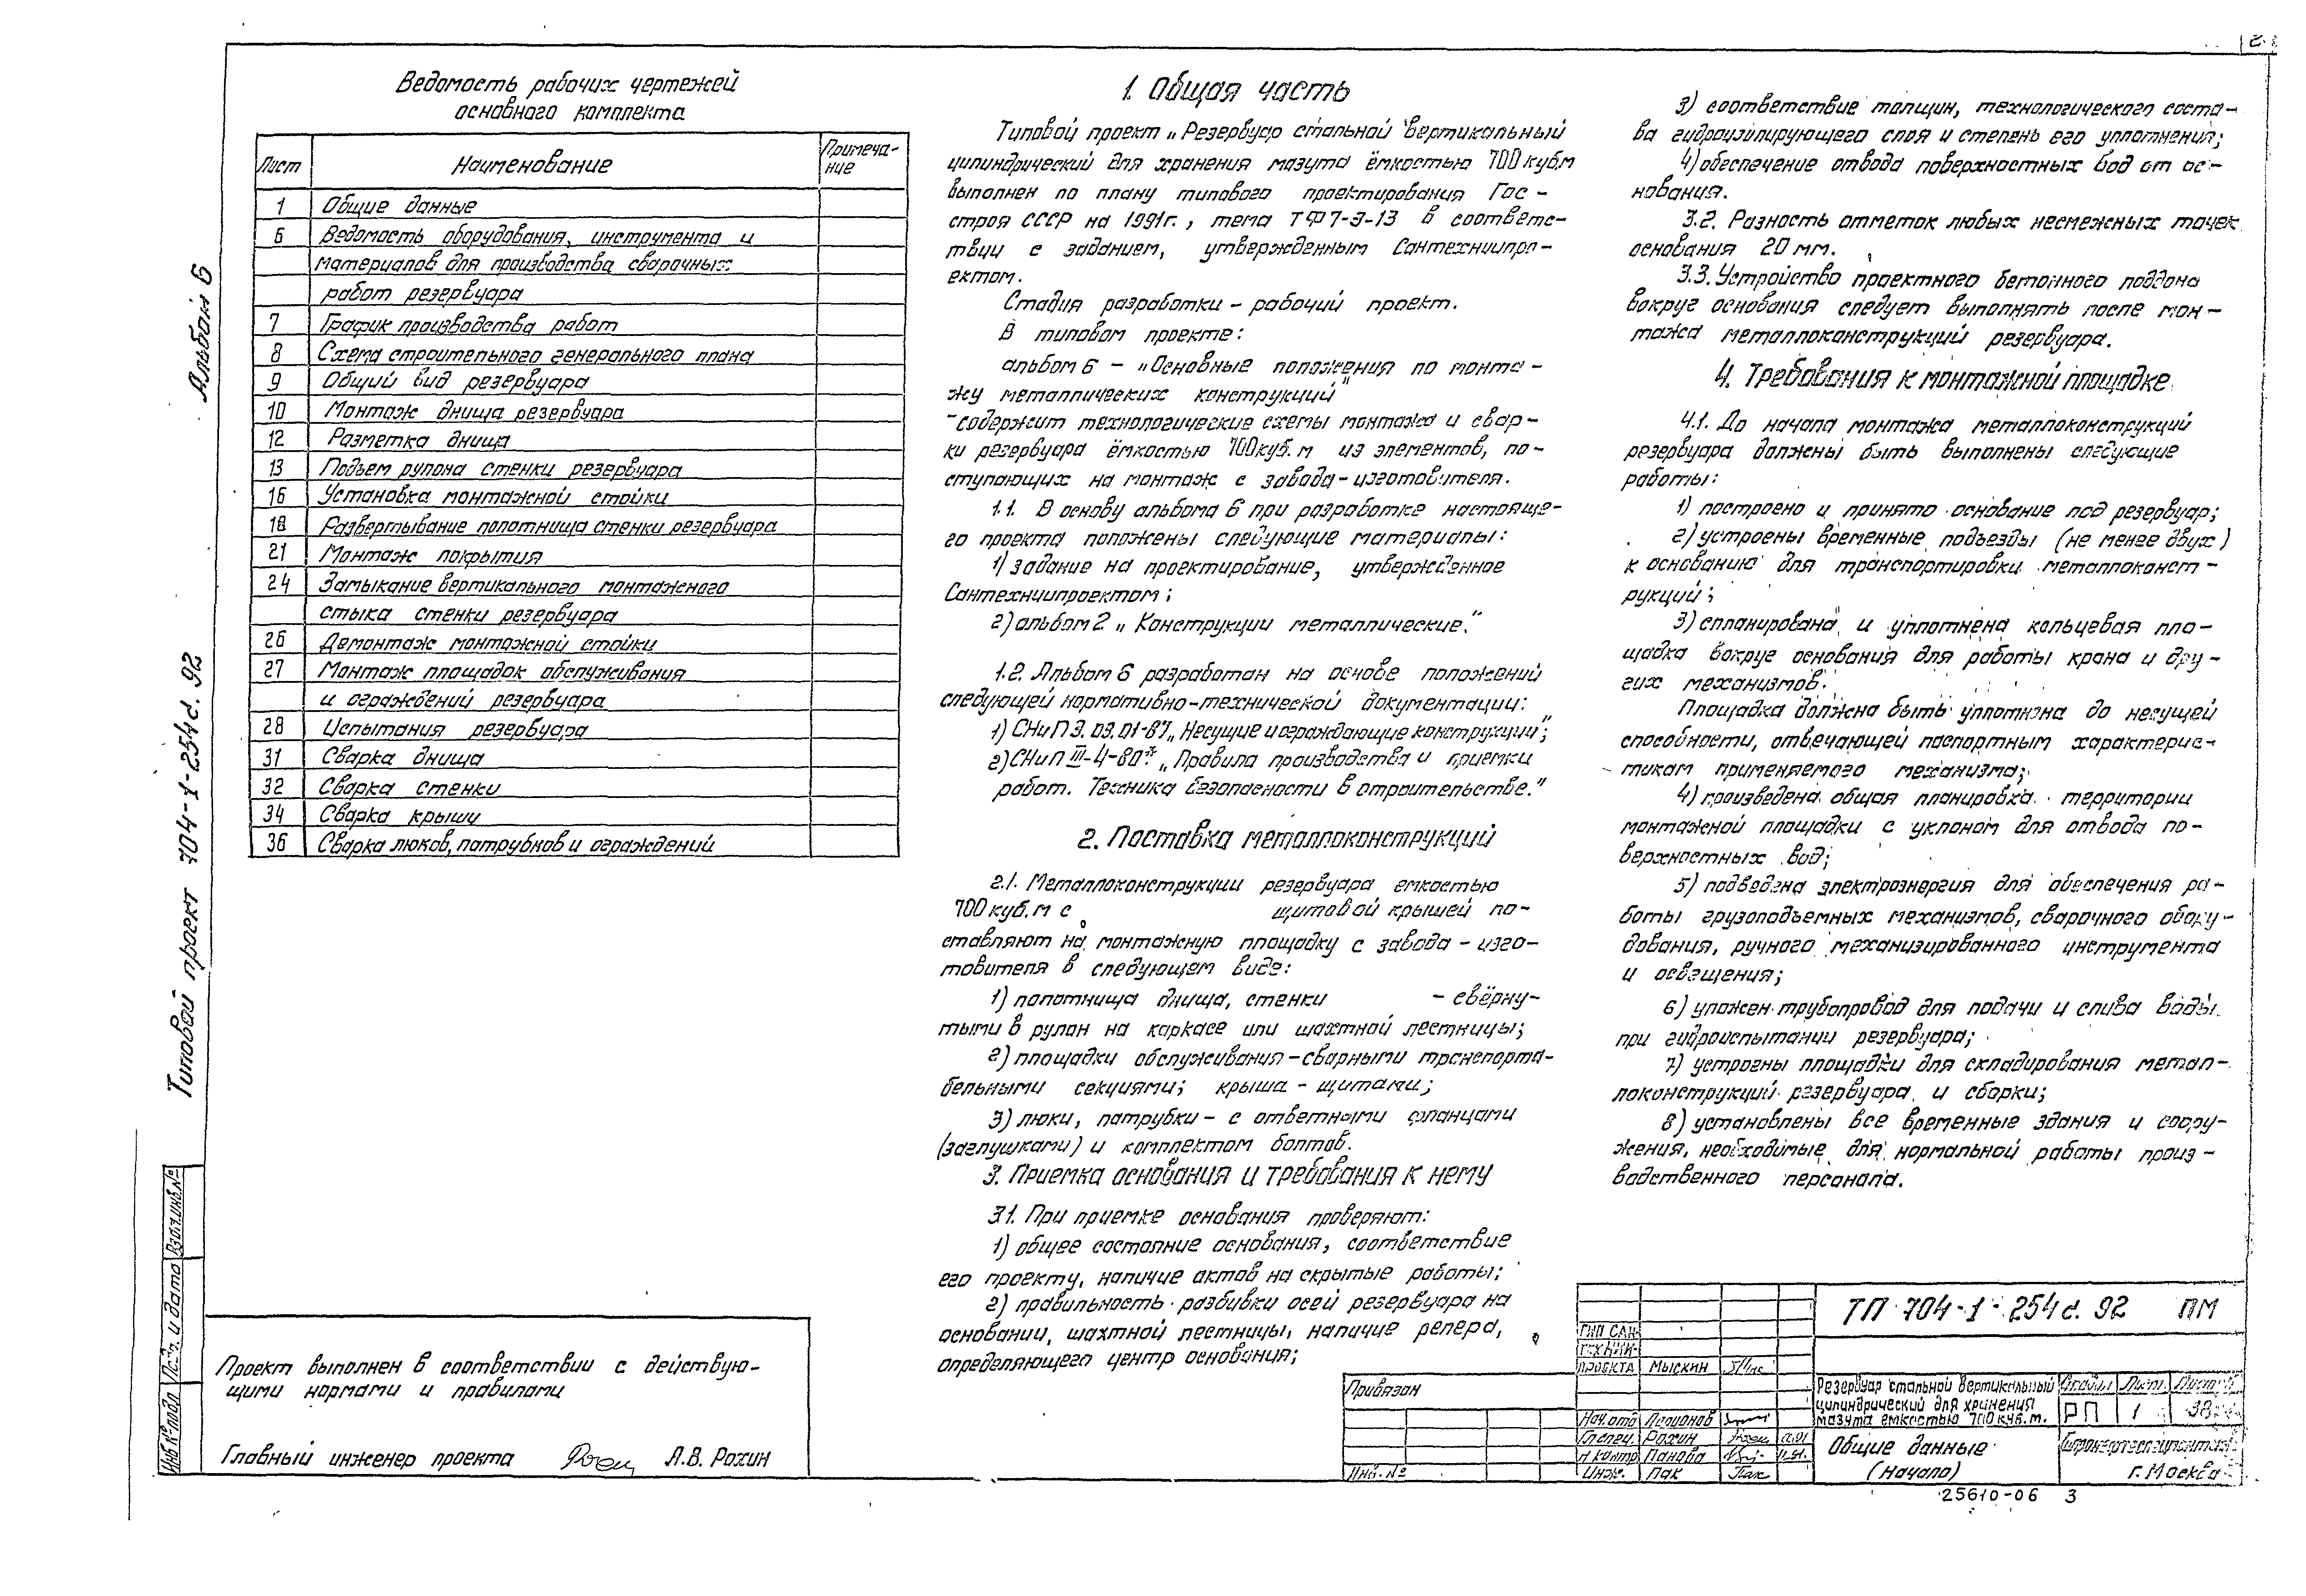 Ведомость рабочих чертежей
основного комплекта
Лист Наименование Примеча-
ние
1 Общие данные
6 Ведомость оборудования, инструмента и
материалов для производства сварочных
работ резервуара
7 График производства работ
8 Схема строительного генерального плана
9 Общий вид резервуара
10 Монтаж днища резервуара
12 Разметка днища
13 Подъем рулона стенки резервуара
16 Установка монтажной стойки
18 Развертывание полотнища стенки резервуара
21 Монтаж покрытия
24 Замыкание вертикального монтажного
стыка стенки резервуара
26 Демонтаж монтажной стойки
27 Монтаж площадок обслуживания
и ограждений резервуара
28 Испытания резервуара
31 Сварка днища
32 Сварка стенки
34 Сварка крыши
36 Сварка люков, патрубков и ограждений
Альбом 6
Типовой проект 704-1-254с. 92
Взам.инв.№
Подп. и дата
Инв.№ подл
Проект выполнен в соответствии с действую-
щими нормами и правилами
Главный инженер проекта А.В. Рохин
1. Общая часть
Типовой проект „Резервуар стальной вертикальный
цилиндрический для хранения мазута ёмкостью 700 куб.м
выполнен по плану типового проектирования Гос-
строя СССР на 1991г., тема ТФ7-3-13 в соответс-
твии с заданием, утвержденным Сантехниипро-
ектом.
Стадия разработки – рабочий проект.
В типовом проекте:
альбом 6 – „Основные положения по монта-
жу металлических конструкций"
-содержит технологические схемы монтажа и свар-
ки резервуара ёмкостью 700куб.м из элементов, по-
ступающих на монтаж с завода-изготовителя.
1.1. В основу альбома 6 при разработке настояще-
го проекта положены следующие материалы:
1) задание на проектирование, утвержденное
Сантехниипроектом;
2) альбом 2 „Конструкции металлические."
1.2. Альбом 6 разработан на основе положений
следующей нормативно-технической документации:
1) СНиП 3.03.01-87 „Несущие и ограждающие конструкции";
2) СНиП III-4-80* „Правила производства и приемки
работ. Техника безопасности в строительстве."
2. Поставка металлоконструкций
2.1. Металлоконструкции резервуара емкостью
700 куб.м с щитовой крышей по-
ставляют на монтажную площадку с завода-изго-
товителя в следующем виде:
1) полотнища днища, стенки – свёрну-
тыми в рулон на каркасе или шахтной лестницы;
2) площадки обслуживания – сварными транспорта-
бельными секциями; крыша – щитами;
3) люки, патрубки – с ответными фланцами
(заглушками) и комплектом болтов.
3. Приемка основания и требования к нему
3.1. При приемке основания проверяют:
1) общее состояние основания, соответствие
его проекту, наличие актов на скрытые работы;
2) правильность разбивки осей резервуара на
основании, шахтной лестницы, наличие репера,
определяющего центр основания;
3) соответствие толщин, технологического соста-
ва гидроизолирующего слоя и степень его уплотнения;
4) обеспечение отвода поверхностных вод от ос-
нования.
3.2. Разность отметок любых несмежных точек
основания 20 мм.
3.3. Устройство проектного бетонного поддона
вокруг основания следует выполнять после мон-
тажа металлоконструкций резервуара.
4. Требования к монтажной площадке
4.1. До начала монтажа металлоконструкций
резервуара должны быть выполнены следующие
работы:
1) построено и принято основание под резервуар;
2) устроены временные подъезды (не менее двух)
к основанию для транспортировки металлоконст-
рукций;
3) спланирована и уплотнена кольцевая пло-
щадка вокруг основания для работы крана и дру-
гих механизмов.
Площадка должна быть уплотнена до несущей
способности, отвечающей паспортным характерис-
тикам применяемого механизма;
4) произведена общая планировка территории
монтажной площадки с уклоном для отвода по-
верхностных вод;
5) подведена электроэнергия для обеспечения ра-
боты грузоподъемных механизмов, сварочного обору-
дования, ручного механизированного инструмента
и освещения;
6) уложен трубопровод для подачи и слива воды
при гидроиспытании резервуара;
7) устроены площадки для складирования метал-
локонструкций резервуара и сборки;
8) установлены все временные здания и соору-
жения, необходимые для нормальной работы произ-
водственного персонала.
Привязан
Инв.№
ГИП САН-
ТЕХНИИ-
ПРОЕКТА Мыскин
Нач.отд Ларионов
Гл.спец. Рохин
Н.контр Панова
Инж. Пак
ТП 704-1-254с. 92 ПМ
Резервуар стальной вертикальный
цилиндрический для хранения
мазута емкостью 700 куб.м.
Стадия Лист Листов
РП 1 38
Общие данные
(Начало)
г. Москва
25610-06 3